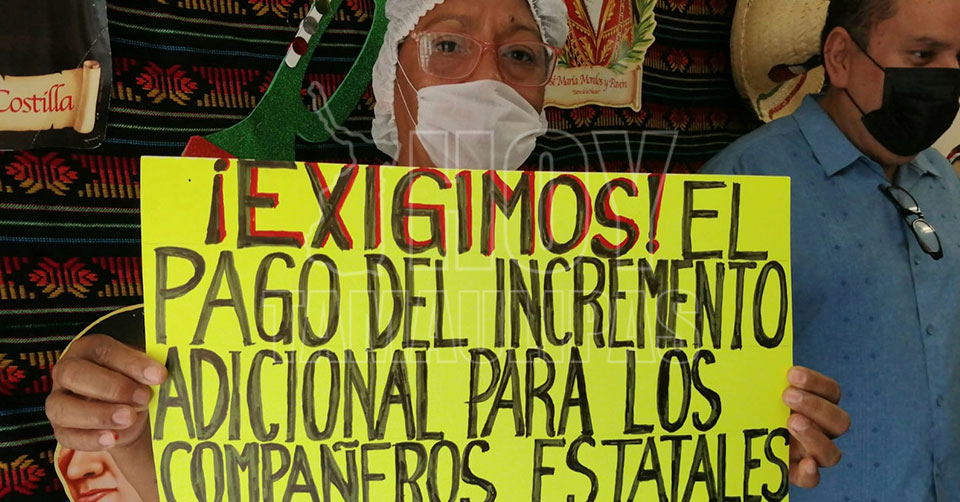 Costilla
José María Morelos y Pavón
¡EXIGIMOS! EL
PAGO DEL INCREMENTO
ADICIONAL PARA LOS
COMPAÑEROS ESTATALES
HOY
TAMAULIPAS